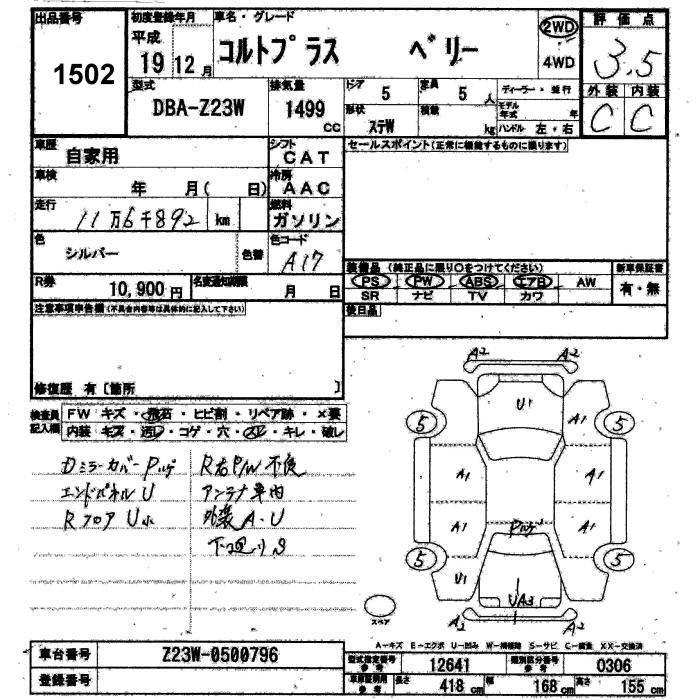 出品番号 初度登録年月 車名・グレード 2WD 評価点
1502 平成 19 12月 コルトプラス ベリー 4WD 3.5
型式 排気量 ドア 5 定員 5人 ディーラー・並行 外装 内装
DBA-Z23W 1499cc 形状 ステW 積載 kg モデル年式 年 ハンドル 左・右 C C
車歴 自家用 シフト CAT セールスポイント(正常に機能するものに限ります)
車検 年 月( 日) 冷房 AAC
走行 11万6千892 km 燃料 ガソリン
色 シルバー 色替 色コード A17
装備品(純正品に限り○をつけてください) 新車保証書
R券 10,900円 名変通知期限 月 日
PS PW ABS エアB AW 有・無
SR ナビ TV カワ
注意事項申告欄(不具合内容等は具体的に記入して下さい) 後日品
修復歴 有 [箇所 ]
検査員記入欄 FW キズ・飛石・ヒビ割・リペア跡・×要
内装 キズ・汚レ・コゲ・穴・スレ・キレ・破レ
Dミラーカバー R右P/W不良
エンドパネルU アンテナ車内
Rフロア U 外装A・U
下回りS
A2 A2
U1
5 A1 5
A1 A1
A1 A1
5 5
U1
UA3
A2 A2
スペア
A-キズ E-エクボ U-凹み W-補修跡 S-サビ C-腐食 XX-交換済
車台番号 Z23W-0500796
型式指定番号 参考 12641 類別区分番号 参考 0306
登録番号
車庫証明用 参考 長さ 418cm 幅 168cm 高さ 155cm